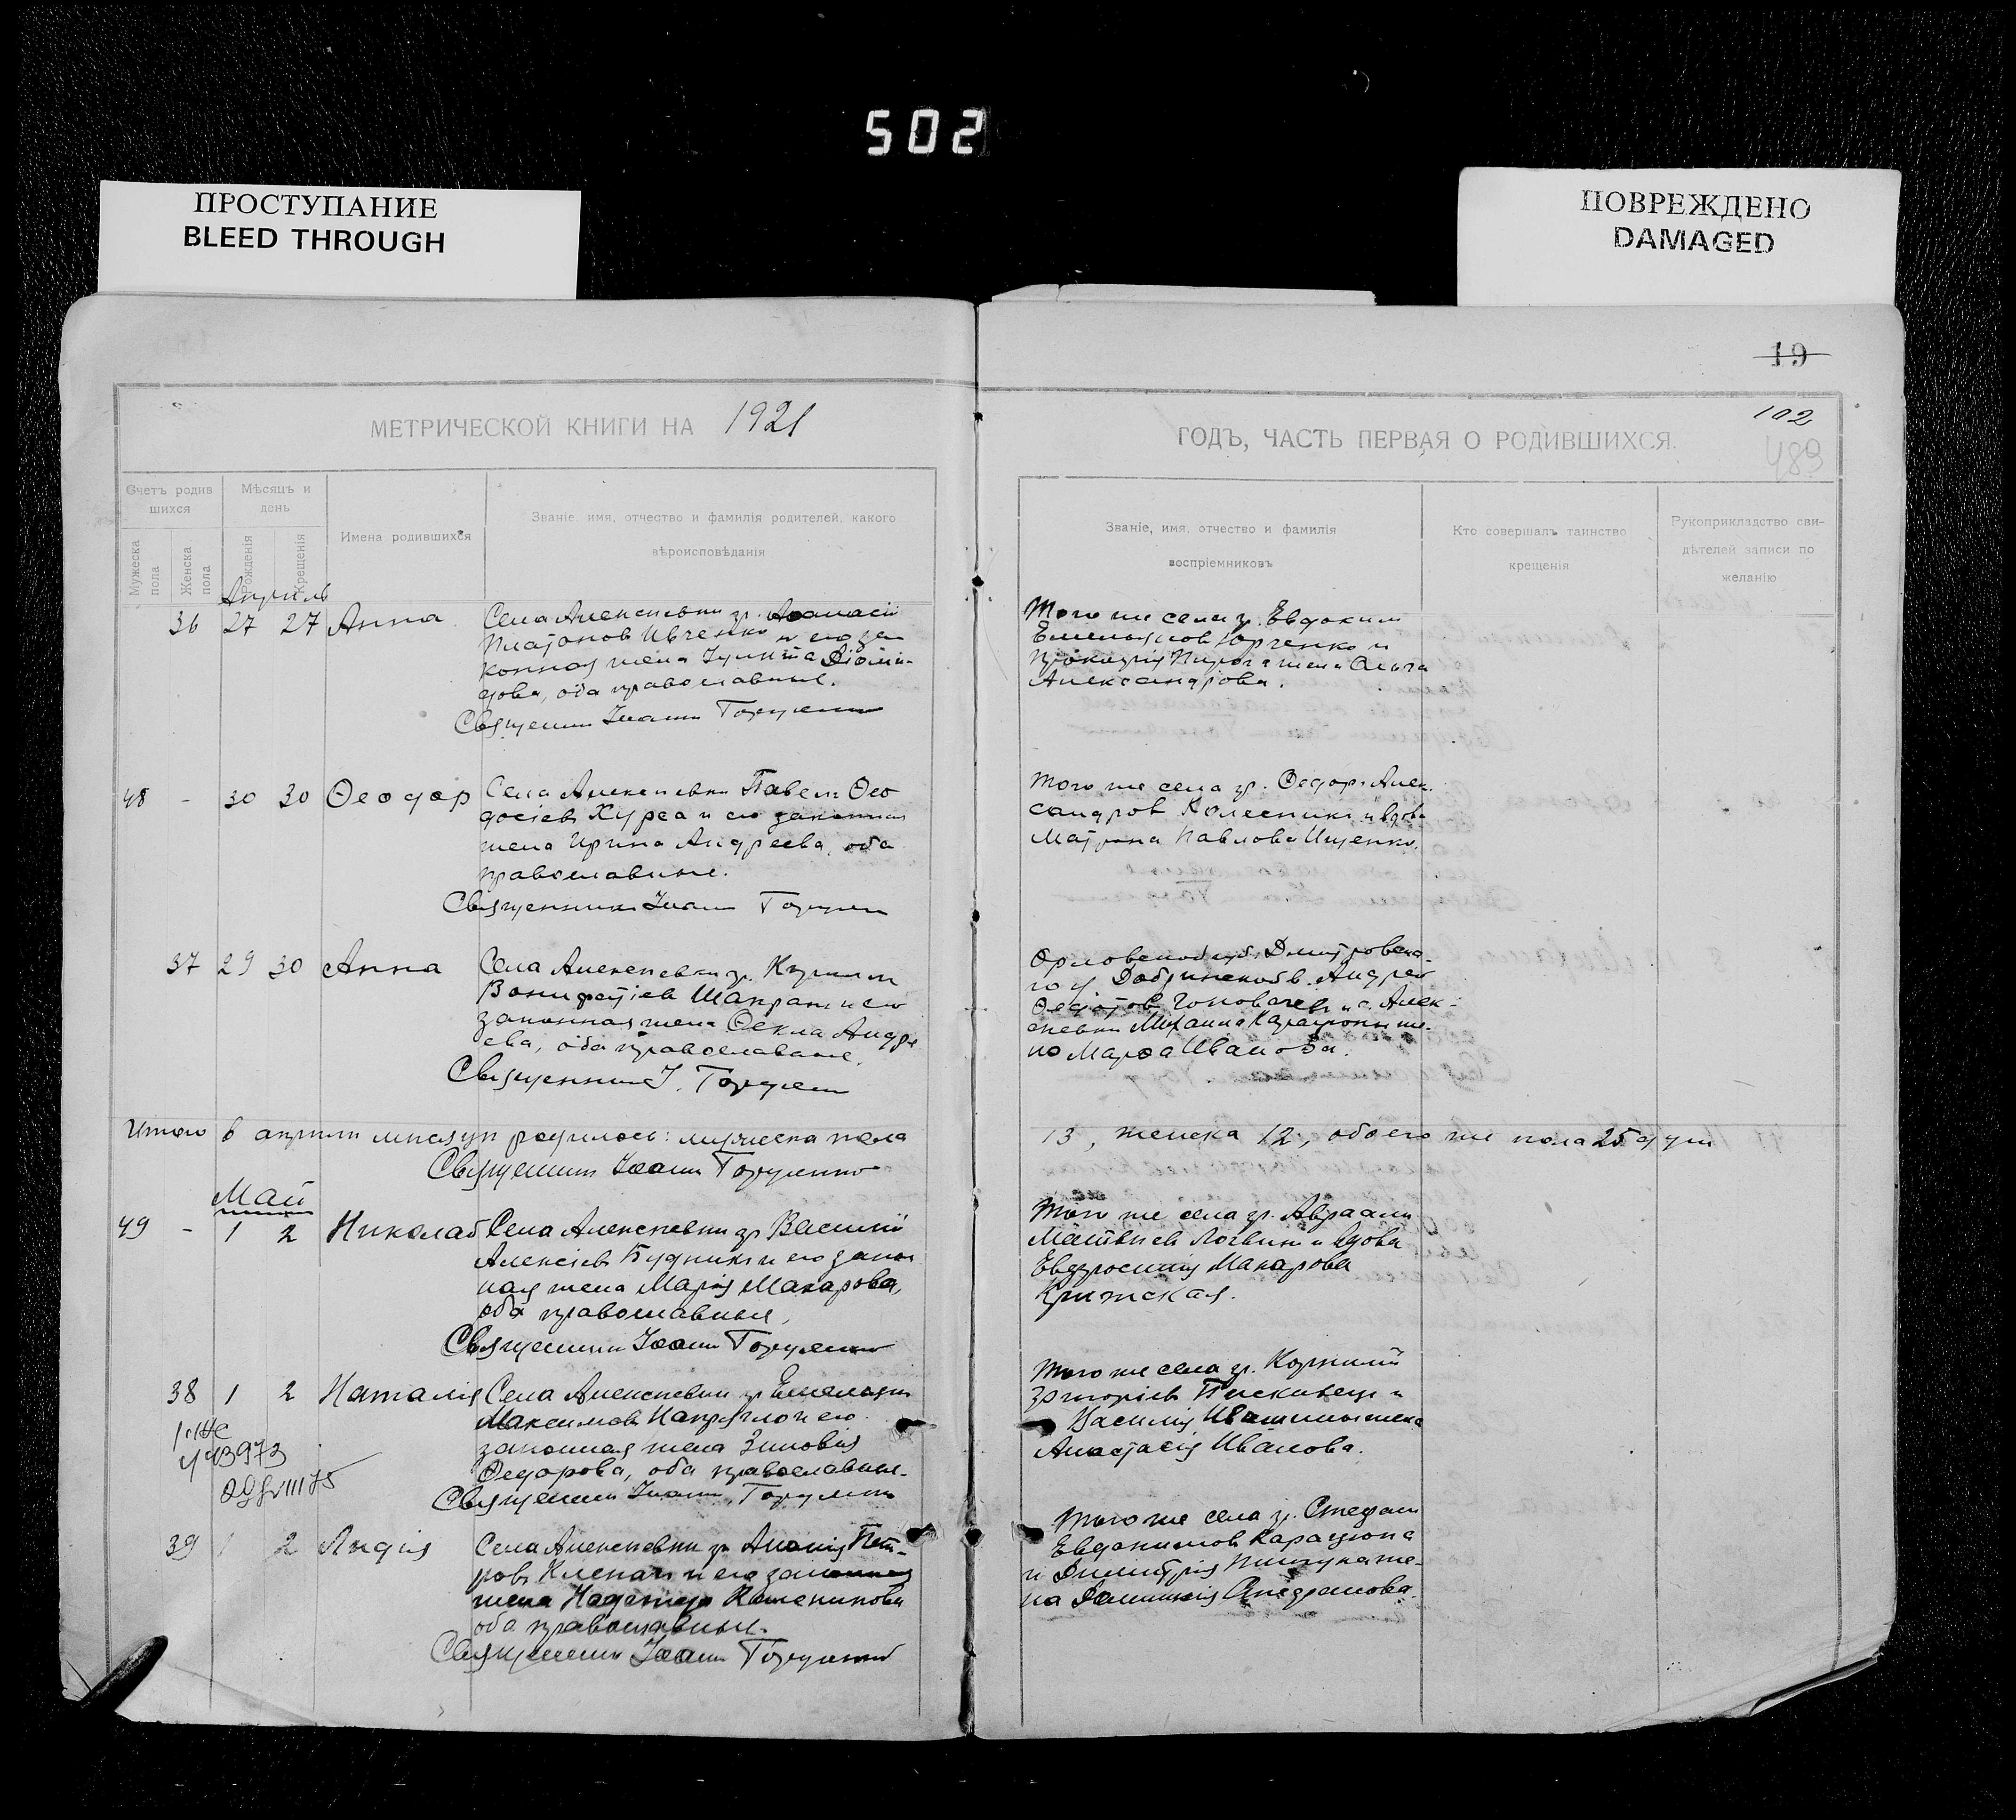 502
ПРОСТУПАНИЕ
BLEED THROUGH
ПОВРЕЖДЕНО
DAMAGED
19
102
489
МЕТРИЧЕСКОЙ КНИГИ НА 1921
ГОДЪ, ЧАСТЬ ПЕРВАЯ О РОДИВШИХСЯ.
Счетъ родив
шихся
Мѣсяцъ и
день
Мужеска
пола
Женска
пола
Рожденія
Крещенія
Имена родившихся
Званіе, имя, отчество и фамилія родителей, какого
вѣроисповѣданія
Званіе, имя, отчество и фамилія
воспріемниковъ
Кто совершалъ таинство
крещенія
Рукоприкладство сви-
дѣтелей записи по
желанію
Апрель
36 27 27 Анна Села Алексеевки гр. Аѳанасій
Платонов Ивченко и его за
конная жена Іулитта
дова, оба православные.
Священник Іоанн
Того же села гр. Евдоким
Емельянов Юрченко и
Прокопія жена Ольга
Александрова.
48 - 30 30 Ѳеодор Села Алексеевки Павел Ѳео
досіев Хурса и его законная
жена Ирина Андреева, оба
православные.
Священник Іоанн
Того же села гр. Ѳедор Алек
сандров Колесник и вдова
Матрона Павлова Ищенко.
37 29 30 Анна Села Алексеевки гр.
Вонифатіев и его
законная жена Ѳекла Андре
ева, оба православные.
Священник І.
Орловской губ. Дмитровска
го у. Добринской в. Андрей
Ѳедотов Головачев и с. Алек-
сеевки Михаила же-
на Марѳа Иванова.
Итого в апреле месяце родилось: мужеска пола
13, женска 12, обоего же пола 25 душ
Священник Іоанн
Май
49 - 1 2 Николай Села Алексеевки гр Василій
Алексіев Будник и его закон
ная жена Марія Макарова,
оба православные,
Священник Іоанн
Того же села гр. Авраам
Матвіев Логвин и вдова
Евфросинія Макарова
38 1 2 Наталія Села Алексеевки гр Емельян
Максимов и его
законная жена Зиновія
Ѳедорова, оба православные.
Священник Іоанн
Того же села гр. Корнилій
Григоріев и
Василія жена
Анастасія Иванова.
39 1 2 Лидія Села Алексеевки гр Ананія Пет-
ров и его законная
жена Надежда
оба православные.
Священник Іоанн
Того же села гр. Стефан
Евдокимов Карацюпа
и Димитрія же-
на